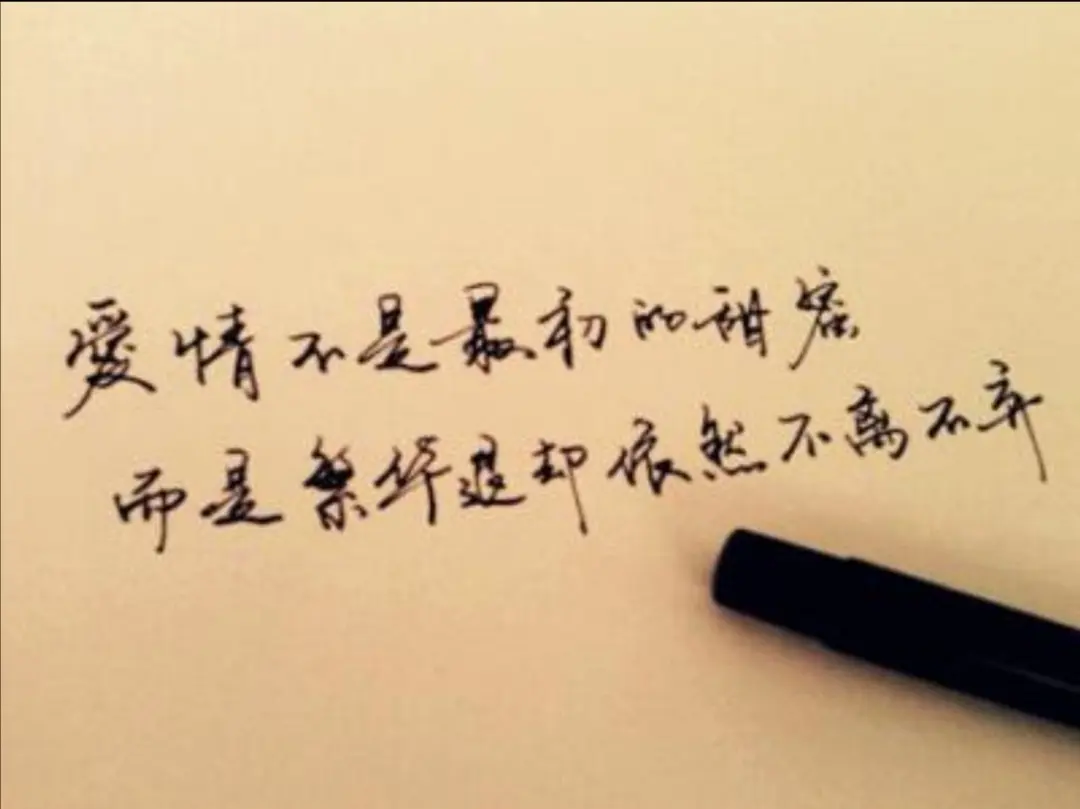 愛情不是最初的甜密
而是繁华退却依然不离不弃